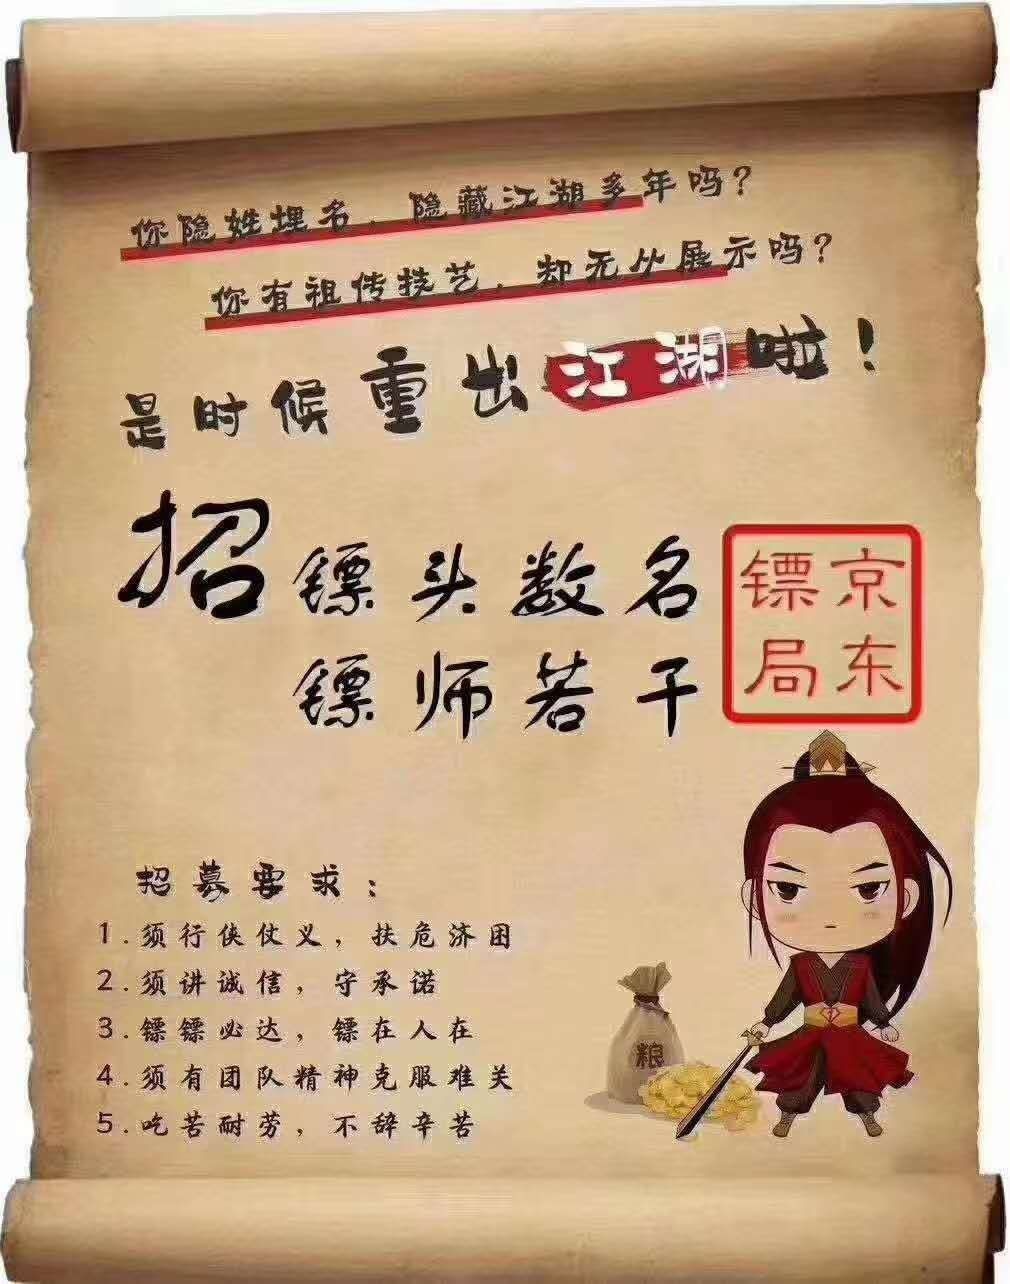 你隐姓埋名，隐藏江湖多年吗？
你有祖传技艺，却无从展示吗？
是时候重出江湖啦！
招镖头数名
镖师若干
京东
镖局
招募要求：
1.须行侠仗义，扶危济困
2.须讲诚信，守承诺
3.镖镖必达，镖在人在
4.须有团队精神克服难关
5.吃苦耐劳，不辞辛苦
粮